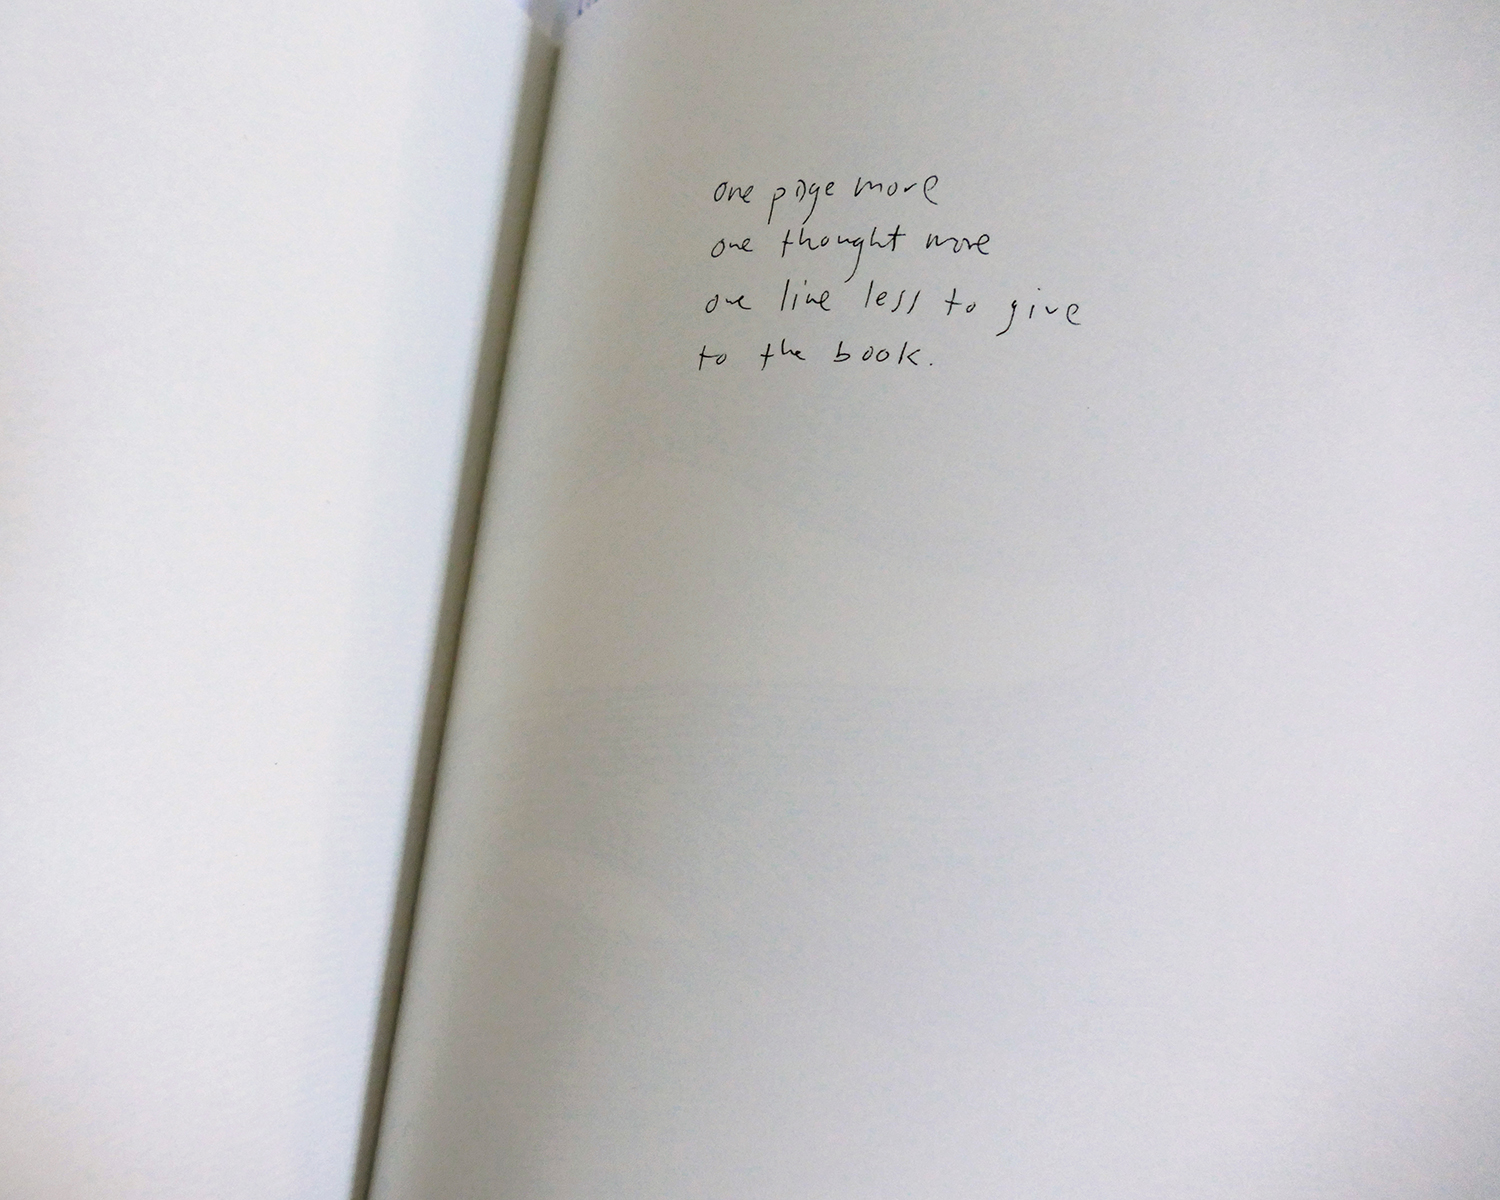 one page more
one thought more
one line less to give
to the book.